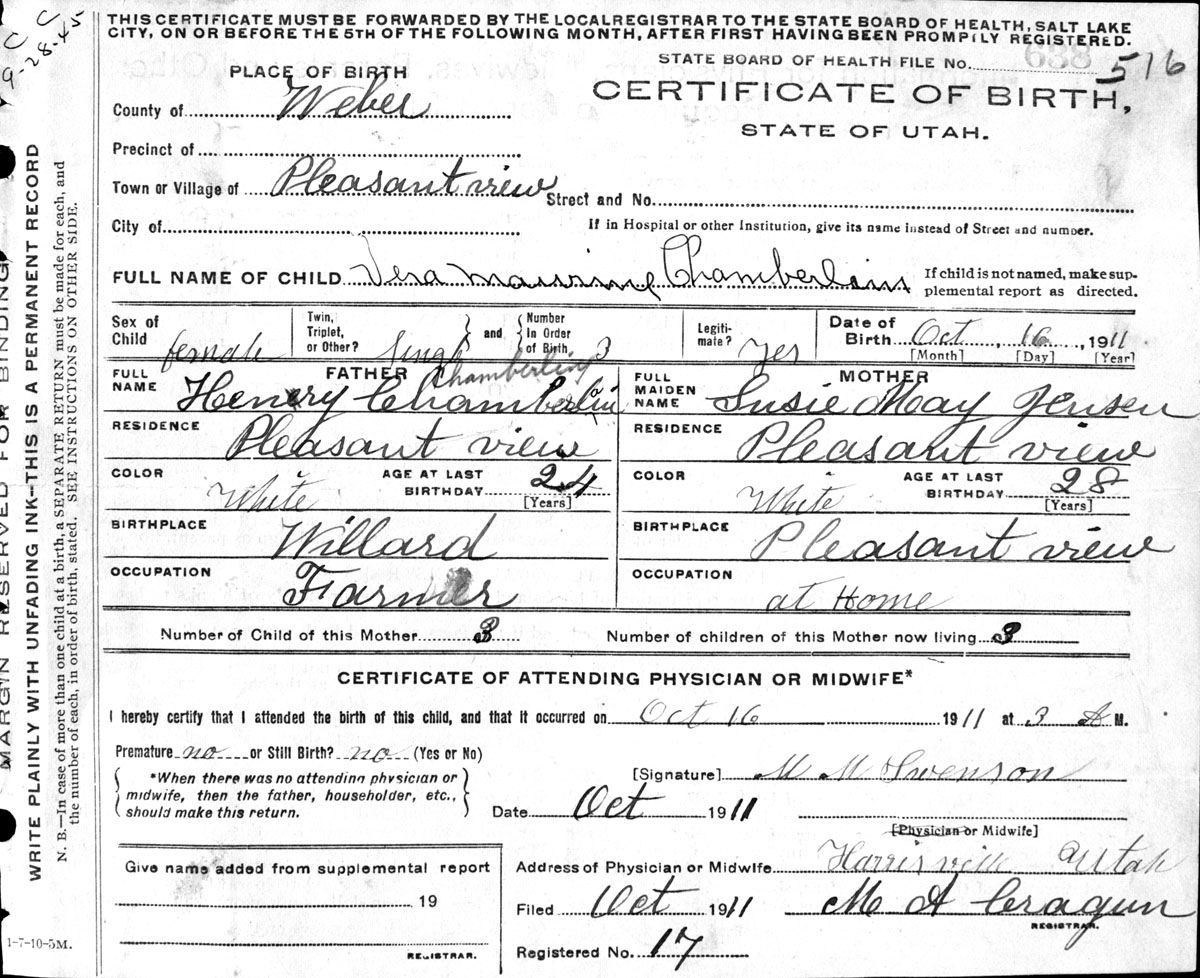 C
9-28-45
THIS CERTIFICATE MUST BE FORWARDED BY THE LOCAL REGISTRAR TO THE STATE BOARD OF HEALTH, SALT LAKE
CITY, ON OR BEFORE THE 5TH OF THE FOLLOWING MONTH, AFTER FIRST HAVING BEEN PROMPTLY REGISTERED.
STATE BOARD OF HEALTH FILE No. 638 516
PLACE OF BIRTH
CERTIFICATE OF BIRTH,
STATE OF UTAH.
County of Weber
Precinct of
Town or Village of Pleasant view Street and No.
City of If in Hospital or other Institution, give its name instead of Street and number.
FULL NAME OF CHILD Vera Maurine Chamberlin If child is not named, make sup-
plemental report as directed.
Sex of Child female Twin, Triplet, or Other? Singl and Number In Order of Birth 3 Legiti-mate? Yes Date of Birth Oct 16 1911
[Month] [Day] [Year]
FATHER Chamberlin MOTHER
FULL NAME Henery Chamberlin FULL MAIDEN NAME Susie May Jensen
RESIDENCE Pleasant view RESIDENCE Pleasant view
COLOR White AGE AT LAST BIRTHDAY 24 [Years] COLOR White AGE AT LAST BIRTHDAY 28 [Years]
BIRTHPLACE Willard BIRTHPLACE Pleasant view
OCCUPATION Farmer OCCUPATION at Home
Number of Child of this Mother 3 Number of children of this Mother now living 3
CERTIFICATE OF ATTENDING PHYSICIAN OR MIDWIFE*
I hereby certify that I attended the birth of this child, and that it occurred on Oct 16 1911 at 3 A M.
Premature no or Still Birth? no (Yes or No)
*When there was no attending physician or
midwife, then the father, householder, etc.,
should make this return.
[Signature] M M Swenson
Date Oct 1911
[Physician or Midwife]
Give name added from supplemental report
19
REGISTRAR.
Address of Physician or Midwife Harrisville Utah
Filed Oct 1911 M A Cragun
REGISTRAR.
Registered No. 17
1-7-10-5M.
MARGIN RESERVED FOR BINDING
WRITE PLAINLY WITH UNFADING INK—THIS IS A PERMANENT RECORD
N. B.—In case of more than one child at a birth, a SEPARATE RETURN must be made for each, and
the number of each, in order of birth, stated. SEE INSTRUCTIONS ON OTHER SIDE.